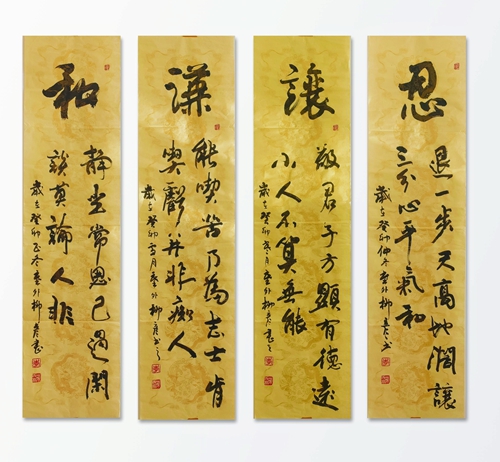 忍
退一步天高地闊讓
三分心平氣和
歲在癸卯仲冬塞外柳
讓
敬君子方顯有德遠
小人不算無能
歲在癸卯月塞外柳
謙
能喫苦乃為志士肯
喫虧并非痴人
歲在癸卯雪月塞外柳
和
靜坐常思己過閑
談莫論人非
歲在癸卯冬塞外柳